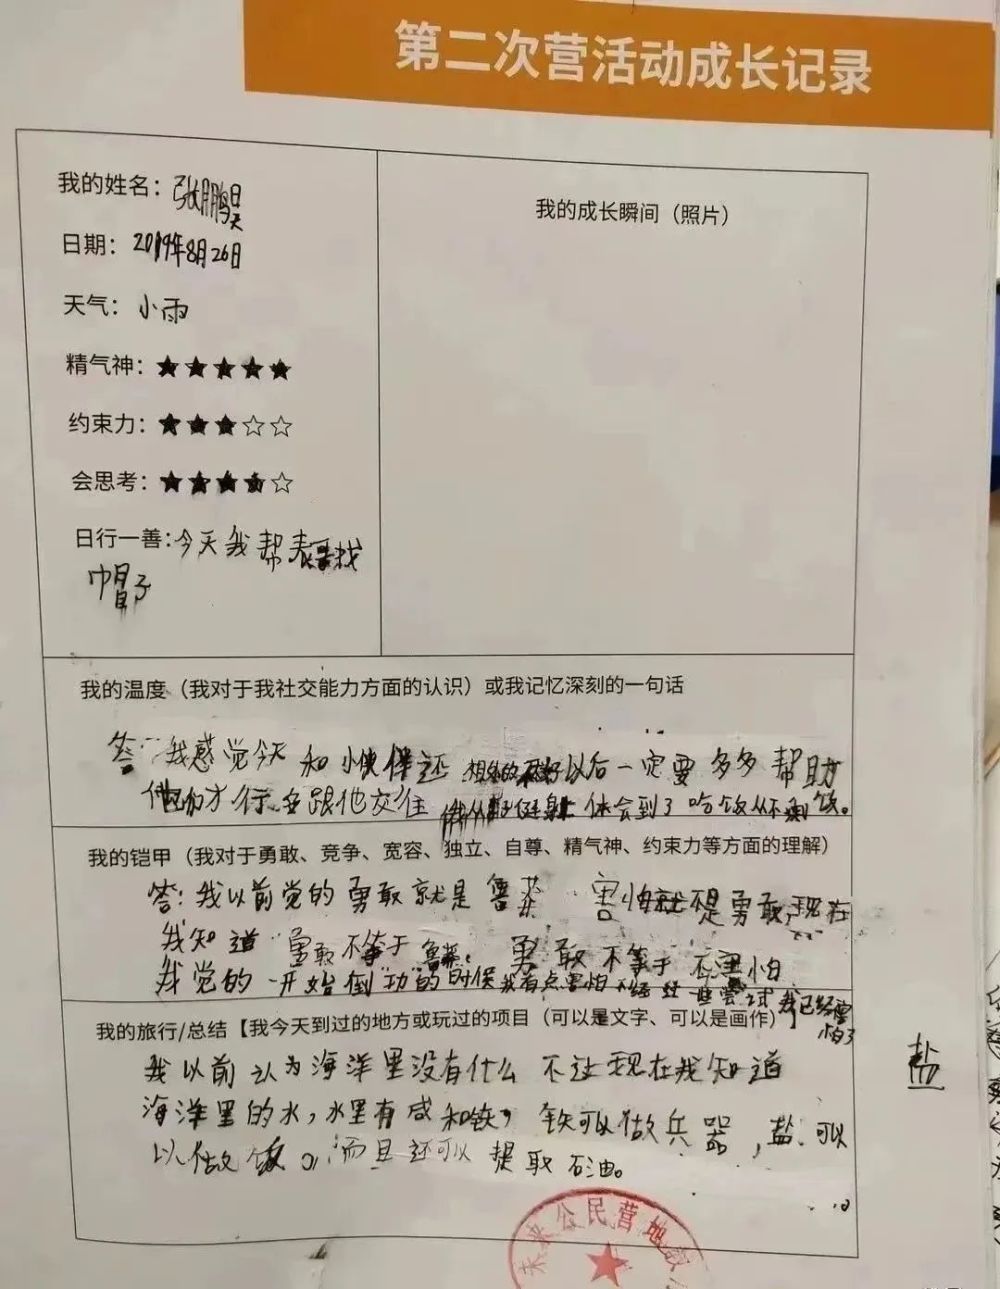 第二次营活动成长记录
我的姓名：张鹏昊
我的成长瞬间（照片）
日期：2019年8月26日
天气：小雨
精气神：★★★★★
约束力：★★★☆☆
会思考：★★★★☆
日行一善：今天我帮 寻找
帽子
我的温度（我对于我社交能力方面的认识）或我记忆深刻的一句话
答：我感觉今天和小伙伴还 以后一定要多多帮助
他们才行 跟他交往 体会到了
我的铠甲（我对于勇敢、竞争、宽容、独立、自尊、精气神、约束力等方面的理解）
答：我以前觉的勇敢就是鲁莽 害怕就不是勇敢，现在
我知道勇敢不等于鲁莽，勇敢不等于不害怕
我觉的一开始 的时候我有点害怕 经过 尝试 我已经
怕了
我的旅行/总结【我今天到过的地方或玩过的项目（可以是文字、可以是画作）】
我以前认为海洋里没有什么 不过现在我知道
海洋里的水，水里有咸和铁，铁可以做兵器，盐可以
以做饭。而且还可以提取石油。
盐
未来公民营地